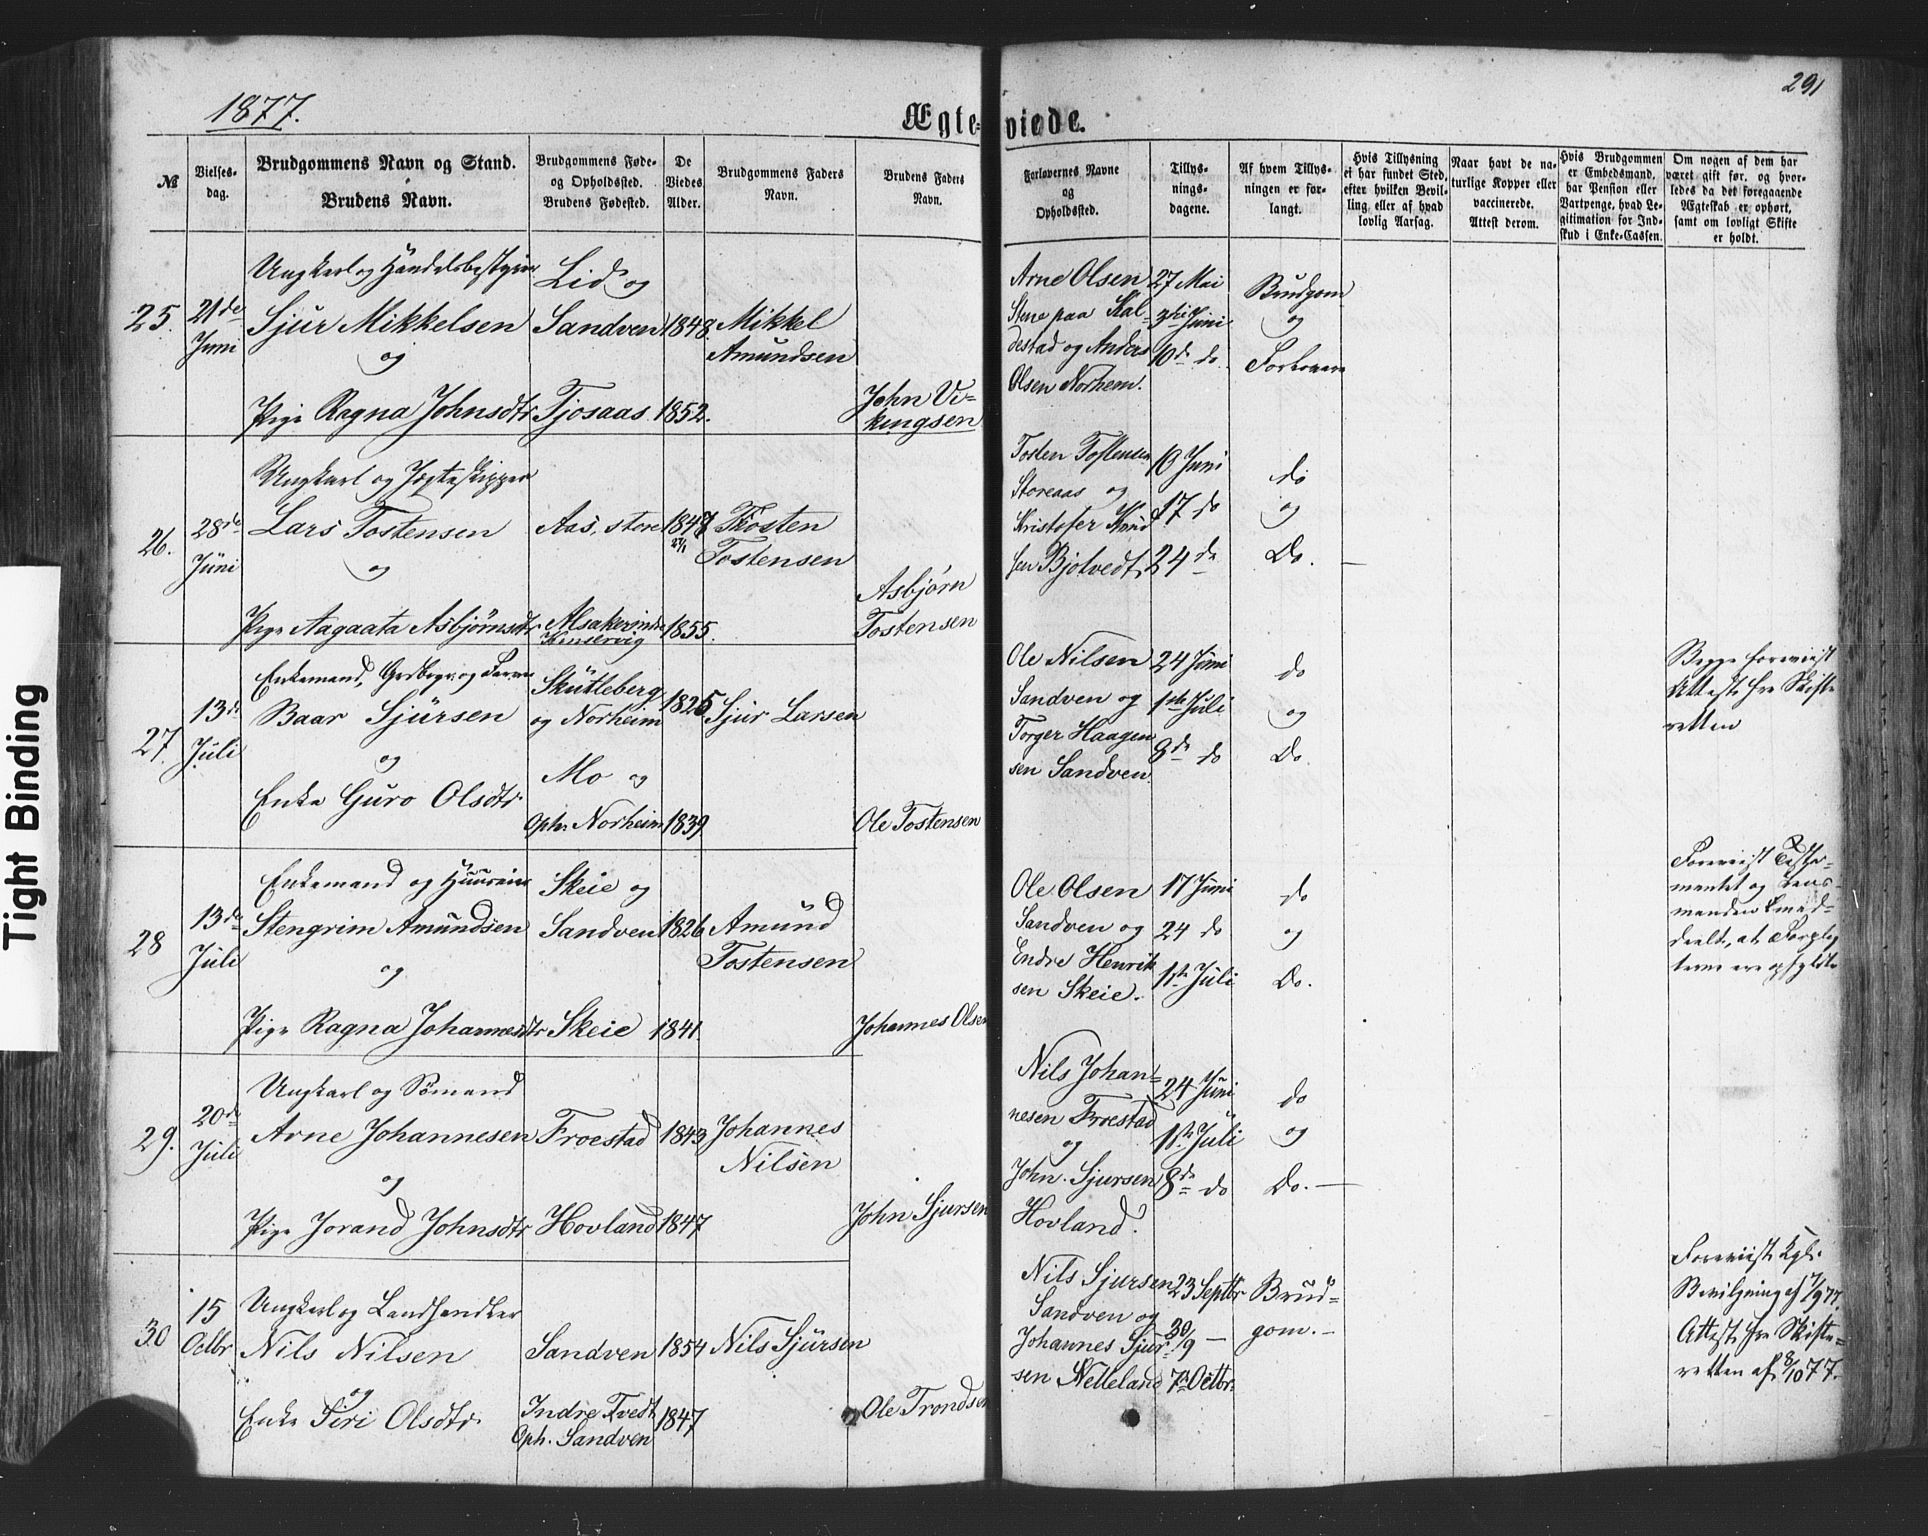 1877.
Ægteviede.
291
№
Vielses-
dag.
Brudgommens Navn og Stand.
Brudens Navn.
Brudgommens Føde-
og Opholdssted.
Brudens Fødested.
De
Viedes
Alder.
Brudgommens Faders
Navn.
Brudens Faders
Navn.
Forlovernes Navne
og
Opholdssted.
Tillys-
nings-
dagene.
Af hvem Tillys-
ningen er for-
langt.
Hvis Tillysning
ei har fundet Sted,
efter hvilken Bevil-
ling eller af hvad
lovlig Aarsag.
Naar havt de na-
turlige Kopper eller
vaccinerede.
Attest derom.
Hvis Brudgommen
er Embedsmand,
har Pension eller
Vartpenge, hvad Le-
gitimation for Ind-
skud i Enke-Cassen.
Om nogen af dem har
været gift før, og hvor-
ledes da det foregaaende
Ægteskab er ophørt,
samt om lovligt Skifte
er holdt.
25.
21de
Juni
Ungkarl og Handelsbestyrer
Sjur Mikkelsen
og
Pige Ragna Johnsdtr
Lid og
Sandven
Tjosaas
1848.
1852.
Mikkel
Amundsen
John Vi-
kingsen
Arne Olsen
Stene paa Kal-
destad og Anders
Olsen Norheim.
27 Mai
3die Juni
10de do
Brudgom
og
Forlovere
26.
28de
Juni
Ungkarl og Jagteskipper
Lars Tostensen
og
Pige Aagaata Asbjørnsdtr
Aas, store
Alsakerinde
1847
27/1
1855.
Thosten
Tostensen
Asbjørn
Tostensen
Tosten Tostensen
Storeaas og
Kristofer Knud
sen Bjotvedt
10 Juni
17 do
24 do
do
og
Do.
27.
13de
Juli
Enkemand, Grdbrgr. og
Baar Sjursen
og
Enke Guro Olsdtr
Skutleberg
og Norheim
Mo og
Oph. Norheim
1825
1839
Sjur Larsen
Ole Tostensen
Ole Nilsen
Sandven og
Torger Haagen
sen Sandven
24 Juni
1ste Juli
8de do
do
og
Do.
Begge foreviist
Attest fra Skifte
retten
28
13de
Juli
Enkemand og Huusmand
Stengrim Amundsen
og
Pige Ragna Johannesdtr
Skeie og
Sandven
Skeie
1826
1841.
Amund
Tostensen
Johannes Olsen
Ole Olsen
Sandven og
Endre Henrik
sen Skeie.
17 Juni
24 do
1ste Juli
do
og
Do.
Foreviist Testa-
mentet og Lens-
manden
deelt, at
terne ere opfyldte
29.
20de
Juli
Ungkarl og Sømand
Arne Johannesen
og
Pige Jorand Johnsdtr
Froestad
Hovland
1843
1847
Johannes
Nilsen
John Sjursen
Nils Johan-
nesen Froestad
og
John Sjursen
Hovland.
24 Juni
1ste Juli
8de do
do
og
Do.
30
15
Octbr
Ungkarl og Landhandler
Nils Nilsen
og
Enke Siri Olsdtr.
Sandven
Indre Tvedt
Oph. Sandven
1854
1847
Nils Sjursen
Ole Trondsen
Nils Sjursen
Sandven og
Johannes Sjur-
sen Netteland
23 Septbr
30/9
7de Octbr.
Brud-
gom.
Foreviist Kgl.
Bevilgning af 7/9 77.
Attest fra Skifte-
retten af 8/10 77.
Tight Binding